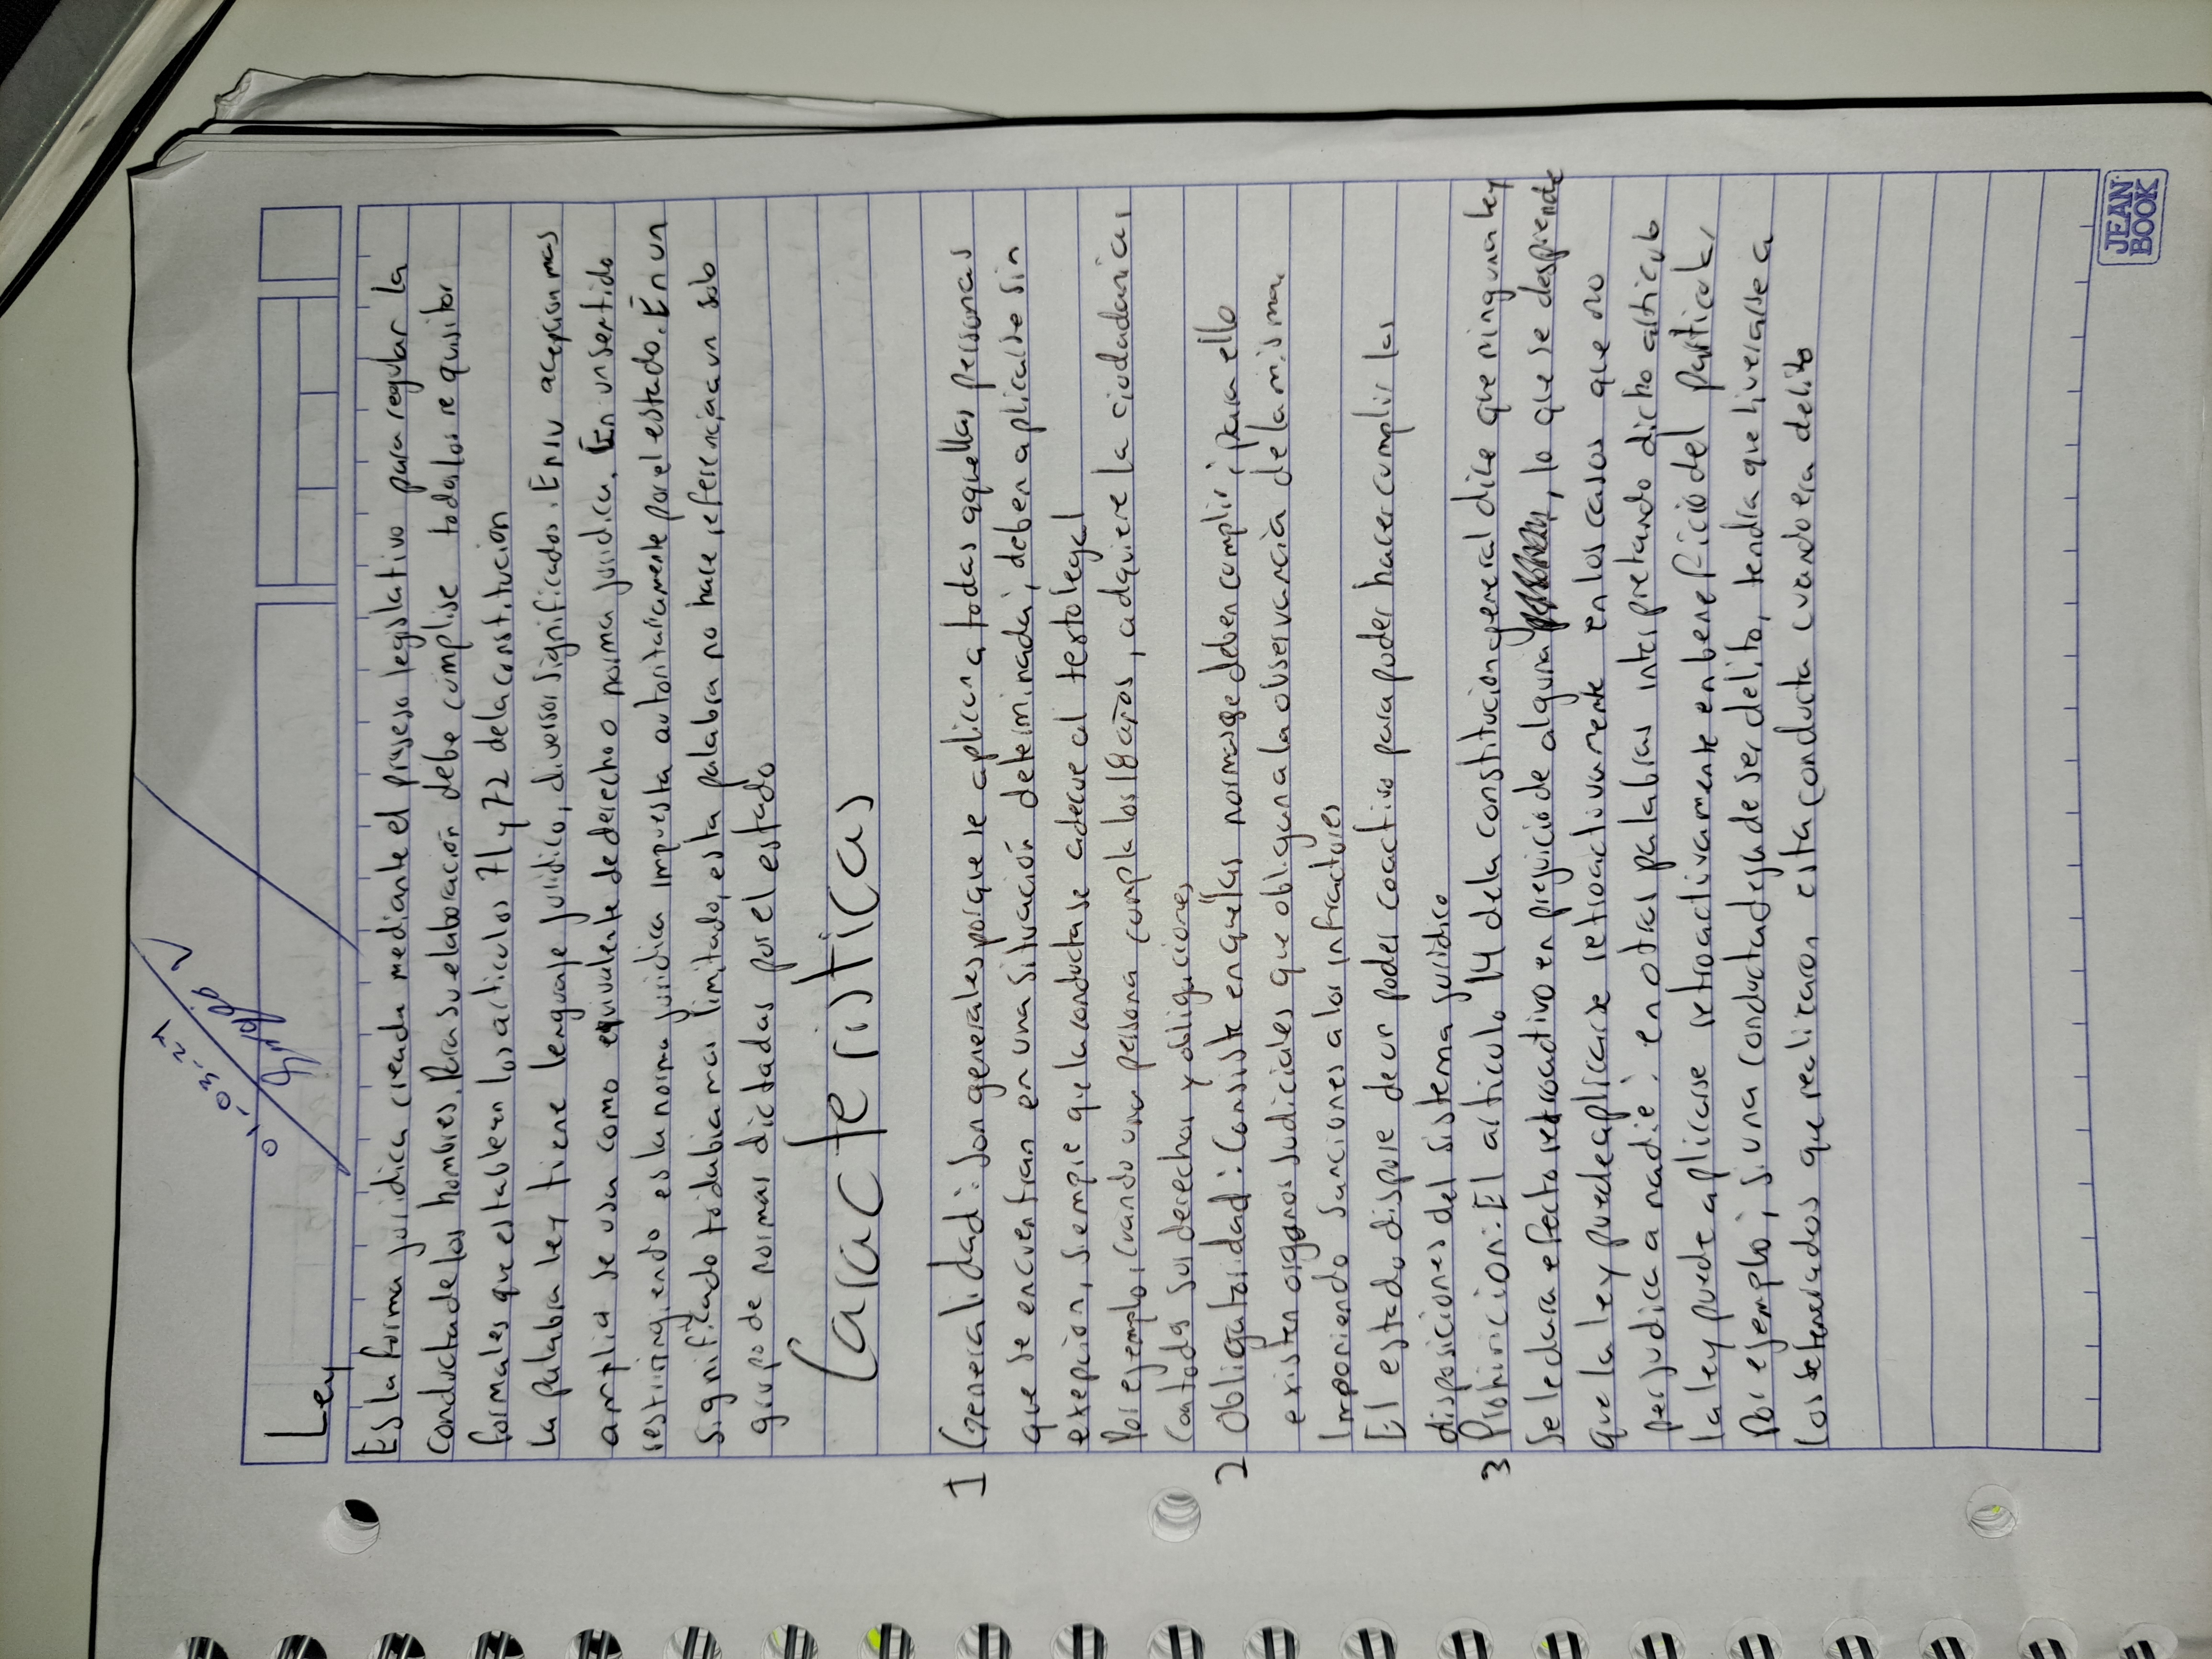 Ley
Es la forma juridica creada mediante el proseso legislativo para regular la
conducta de los hombres. Para su elaboración debe cumplise todos los requisitos
formales que establecen los articulos 71 y 72 de la constitucion
la palabra ley tiene lenguaje juridico, diversos significados. En su acepcion mas
amplia se usa como equivalente de derecho o norma juridica. En un sentido
restiringiendo es la norma juridica impuesta autoritariamente por el estado. En un
significado todabia mas limitado, esta palabra no hace referencia a un solo
grupo de normas dictadas por el estado
Caracteristicas
1 Generalidad: Son generales porque se aplican a todas aquellas personas
que se encuentran en una situación determinada, deben aplicarse sin
exepcion, siempre que la conducta se adecue al testo legal
Por ejemplo, cuando una persona cumpla los 18 años, adquiere la ciudadania,
con todos sus derechos y obligaciones
2 Obligatoridad: Consiste en que las normas se deben cumplir; para ello
existen organos judiciales que obligan a la observancia de la misma
Imponiendo sanciones a los infractores
El estado dispone de un poder coactivo para poder hacer cumplir las
disposiciones del sistema juridico
3 Prohivicion: El articulo 14 de la constitucion general dice que ninguna ley
Se le dara efecto retroactivo en prejuicio de alguna, lo que se desprende
que la ley puede aplicarse retroactivamente en los casos que no
perjudica a nadie: en otras palabras interpretando dicho articulo
la ley puede aplicarse retroactivamente en beneficio del particular
Por ejemplo; si una conducta deja de ser delito, tendria que liverarse a
los setenciados que realizaron esta conducta cuando era delito
JEAN
BOOK